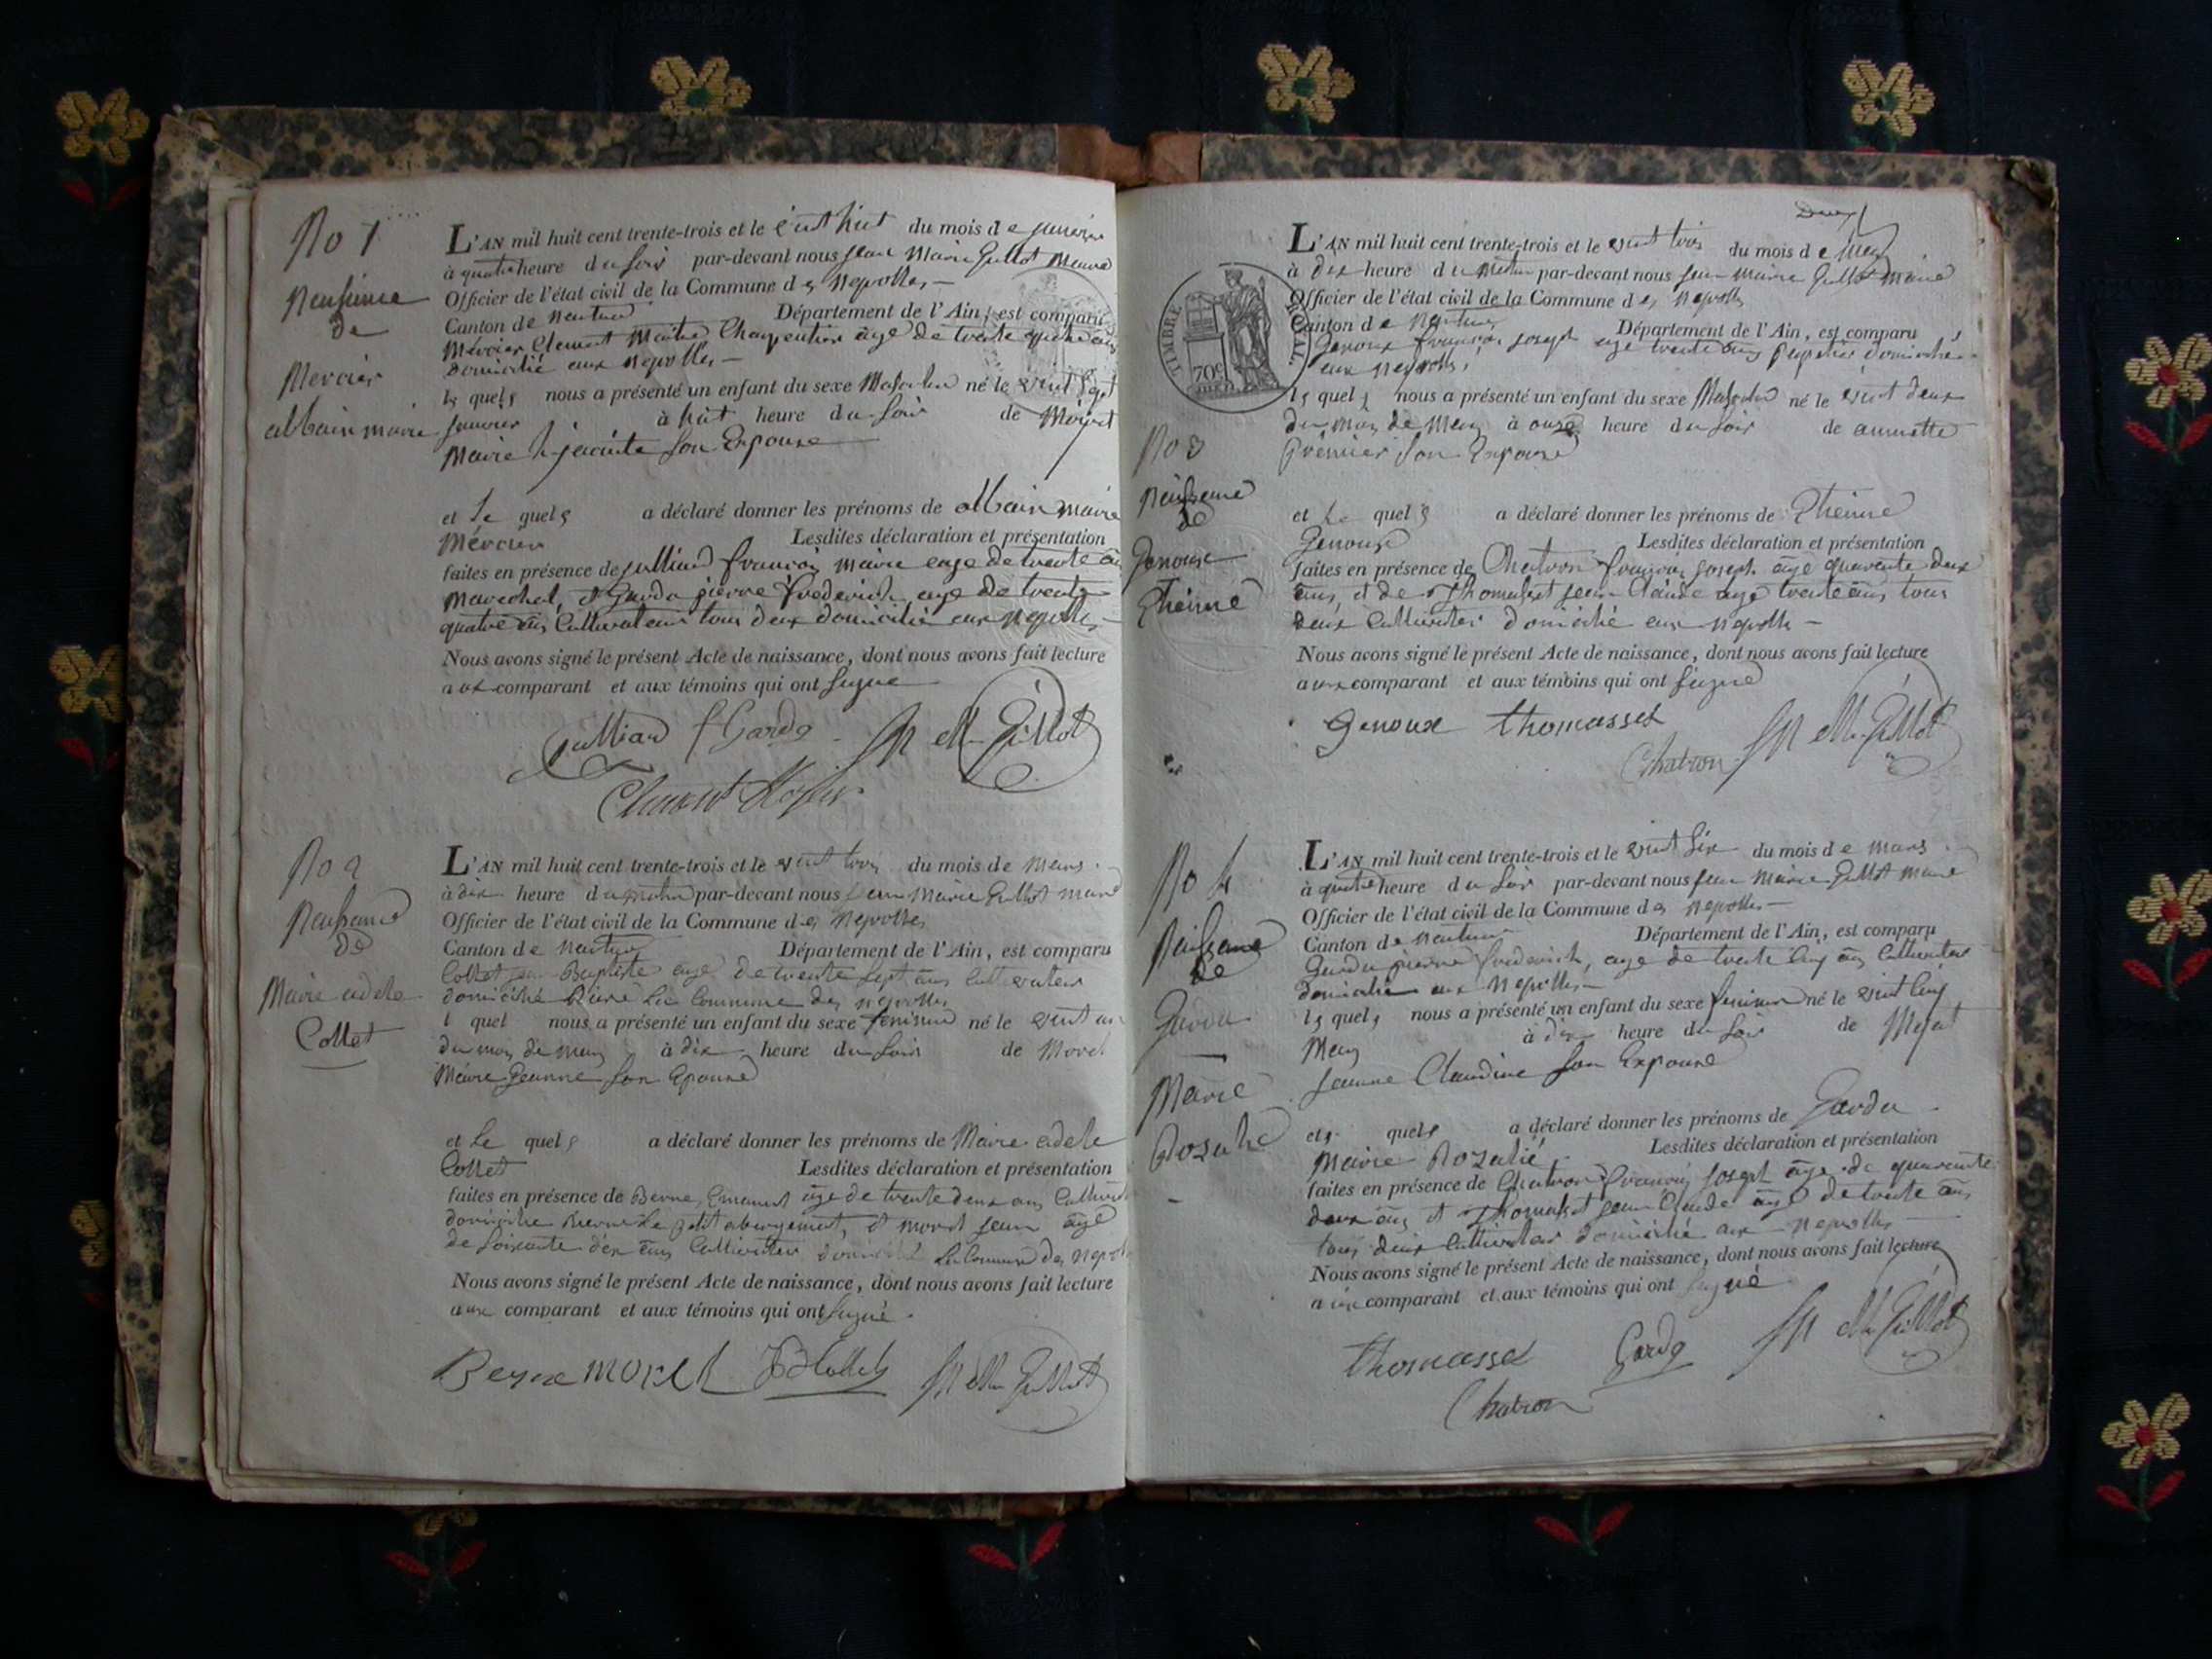 No 1
de
Mercier
albain marie
L'AN mil huit cent trente-trois et le vint huit du mois de janvier
à quatre heure du soir par-devant nous jean Marie Gullot Maire
Officier de l'état civil de la Commune des Neyrolles
Canton de Nantua Département de l'Ain, est comparu
Mercier Clement Maitre Charpentier agé de trente quatre ans
domicilié aux Neyrolles
le quel nous a présenté un enfant du sexe Masculin né le vint sept
janvier à huit heure du soir de
Marie hjacinte son Epouse
et le quel a déclaré donner les prénoms de albain marie
Mercier Lesdites déclaration et présentation
faites en présence de julliard françois marie age de trente ans
Marechal, et Gardo pierre frederich age de trente
quatre ans Cultivateur tous deux domicilié aux Neyrolles
Nous avons signé le présent Acte de naissance, dont nous avons fait lecture
aux comparant et aux témoins qui ont signe
julliard f Gardo
No 2
de
Marie adele
Collet
L'AN mil huit cent trente-trois et le vint trois du mois de Mars
à dix heure du matin par-devant nous jean Marie Gullot maire
Officier de l'état civil de la Commune des Neyrolles
Canton de Nantua Département de l'Ain, est comparu
Collet jean Baptiste age de trente sept ans cultivateur
domicilié la Commune des neyrolles
l quel nous a présenté un enfant du sexe feminin né le vint un
du mois de mars à dix heure du soir de Morel
Marie Jeanne son Epouse
et le quel a déclaré donner les prénoms de Marie adele
Collet Lesdites déclaration et présentation
faites en présence de age de trente deux ans
domicilié et morel jean age
de soixante dix ans Cultivateur la Commune des
Nous avons signé le présent Acte de naissance, dont nous avons fait lecture
aux comparant et aux témoins qui ont signé.
morel
Deux
L'AN mil huit cent trente-trois et le vint trois du mois de Mars
à dix heure du matin par-devant nous jean marie Gullot maire
Officier de l'état civil de la Commune des Neyrolles
Canton de Nantua Département de l'Ain, est comparu
Genoux françois joseph age trente ans domicilié
aux neyrolles
TIMBRE ROYAL.
70c
le quel nous a présenté un enfant du sexe Masculin né le vint deux
du mois de Mars à onze heure du soir de annette
son Epouse
No 3
Naissance
de
Genoux
et le quel a déclaré donner les prénoms de
Genoux Lesdites déclaration et présentation
faites en présence de Chatron françois joseph age quarente deux
ans, et de Thomasset jean Claude age trente ans, tous
deux Cultivateur domicilié aux neyrolles
Nous avons signé le présent Acte de naissance, dont nous avons fait lecture
aux comparant et aux témoins qui ont signé
Genoux thomasset
Chatron
No 4
Naissance
de
Gardo
Marie
Rozalie
L'AN mil huit cent trente-trois et le vint six du mois de mars
à quatre heure du soir par-devant nous jean Marie Gullot maire
Officier de l'état civil de la Commune des neyrolles
Canton de Nantua Département de l'Ain, est comparu
Gardo pierre frederich, age de trente cinq ans Cultivateur
domicilié aux Neyrolles
le quel nous a présenté un enfant du sexe feminin né le vint cinq
Mars à dix heure du soir de
jeanne Claudine son Epouse
et quel a déclaré donner les prénoms de Gardo
Marie Rozalie Lesdites déclaration et présentation
faites en présence de Chatron françois joseph âge de quarante
deux ans et Thomasset jean Claude âge de trente ans
tous deux Cultivateur domicilié aux neyrolles
Nous avons signé le présent Acte de naissance, dont nous avons fait lecture
aux comparant et aux témoins qui ont signé
thomasset Gardo
Chatron